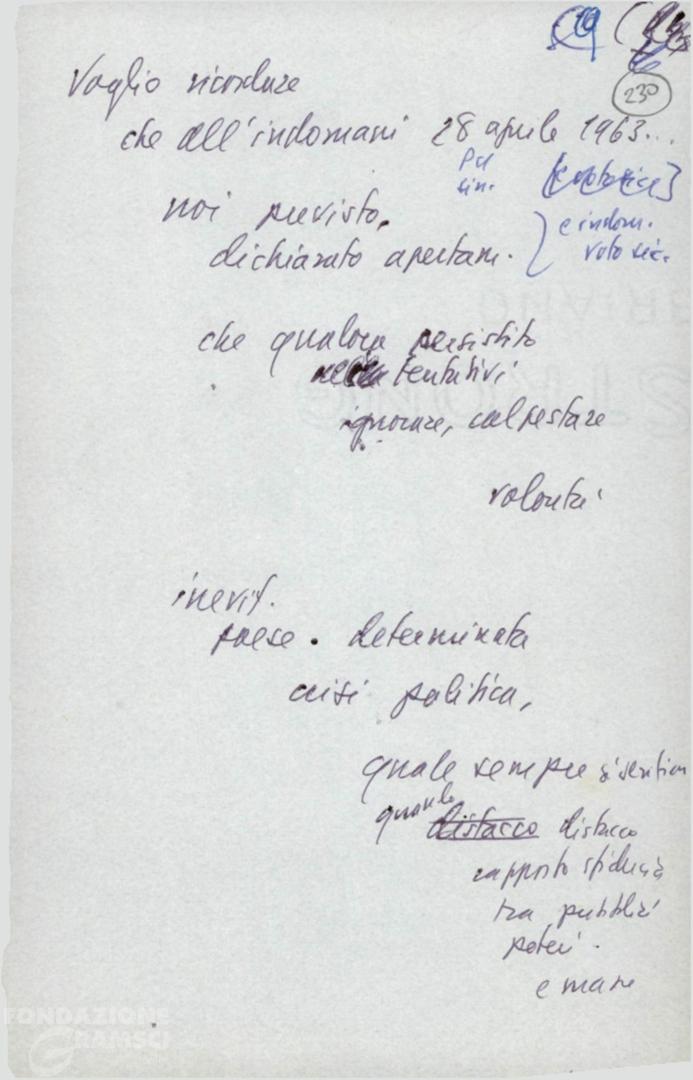 19
230
Voglio ricordare
che all'indomani 28 aprile 1963...
Pci
sin.
noi previsto,
dichiarato apertam.
e indom.
voto sic.
che qualora persistito
tentativi
ignorare, calpestare
volontà
inevit.
paese . determinata
crisi politica,
quale sempre si verifica
quando
distacco distacco
rapporto sfiducia
tra pubblici
poteri .
e masse
FONDAZIONE
GRAMSCI